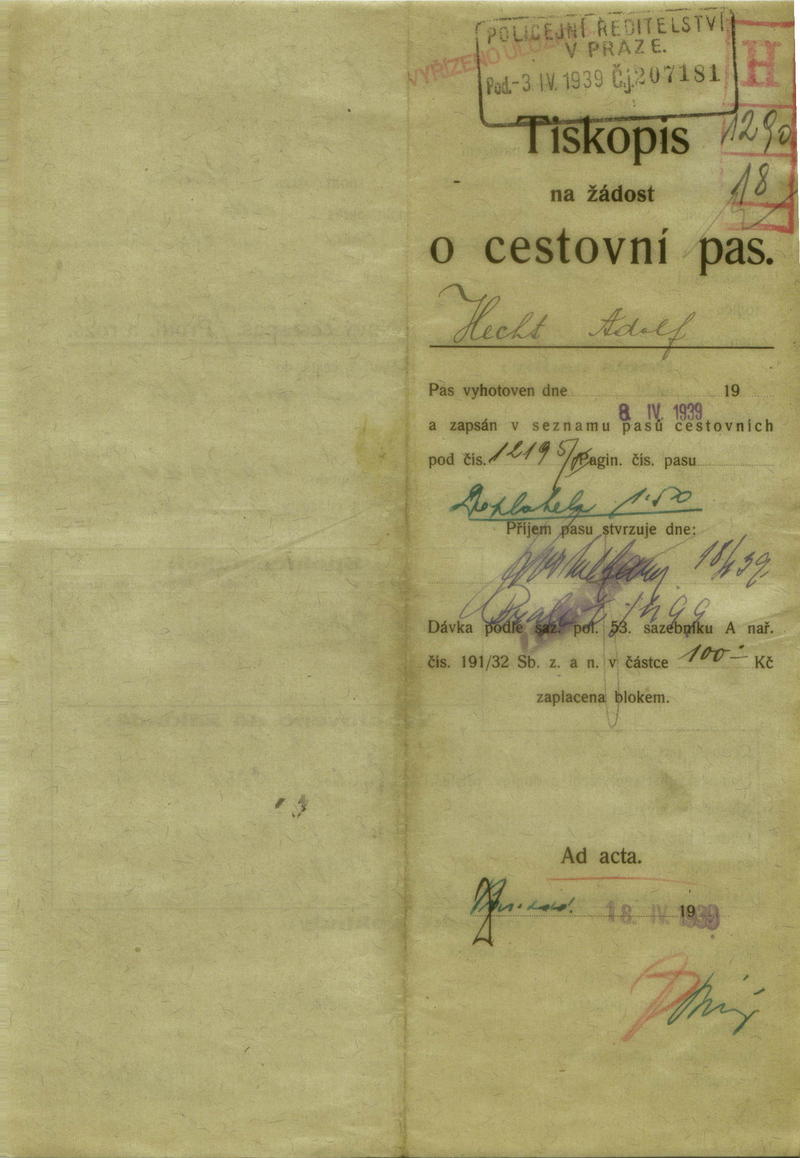 POLICEJNÍ ŘEDITELSTVÍ
V PRAZE.
Pod.-3 IV. 1939 Čj. 207181
VYŘÍZENO
H
1290
18
Tiskopis
na žádost
o cestovní pas.
Hecht Adolf
Pas vyhotoven dne 19
8 IV. 1939
a zapsán v seznamu pasů cestovních
pod čís. 12195/ Pagin. čís. pasu
Doplatek 1.50
Příjem pasu stvrzuje dne:
18/4 39
Dávka podle saz. pol. 53. sazebníku A nař.
čís. 191/32 Sb. z. a n. v částce 100.- Kč
zaplacena blokem.
Ad acta.
18. IV. 1939